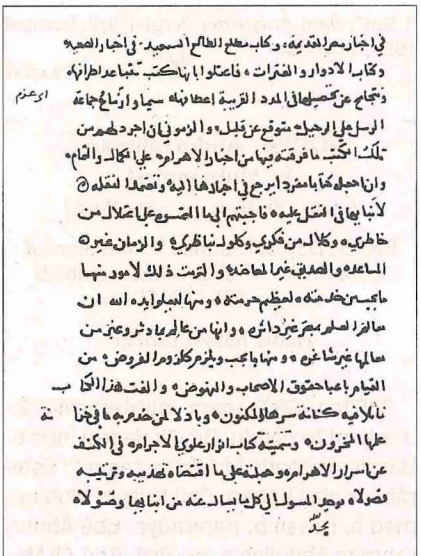 في اخبار مصر القديمة، وكتاب مطلع الطالع السعيد في اخبار الصعيد،
وكتاب الادوار والفترات، فاعتلوا بانها كتب تتباعد اطرافها
وتحتاج عن تحصيلها في المدد القريبة اعطافها، سيما وازماع جماعة
الرسل على الرحيل متوقع عن قليل، والزموني ان اجرد لهم من
تلك الكتب ما فرقته فيها من اخبار الاهرام على الكمال والتمام،
وان اجعله كتابا مفردا يرجع في اخبارها اليه، وتعتمد النقلة
لانبائها في النقل عليه، فاجبتهم الى ما التمسوه على اعتلال من
خاطري، وكلال من فكري وكلول نباظري، والزمان غير
المساعد والصديق غير المعاضد، والتزمت ذلك لامور منها
ما يجب من خدمته لعظيم حرمته، ومنها ليعلم ايده الله ان
معالم العلوم بمصر غير داثرة، وانها من عالم بها وثر وعنز من
معالمها غير شاغرة، ومنها ما يجب ويلزم كلزوم الفروض من
القيام باعباء حقوق الاصحاب والنهوض، والفت هذا الكتاب
ناثلا فيه كنانة سرها المكنون، وباذلا من حضره ما في خزانة
علمها المخزون، وسميته كتاب انوار علوي الاجرام، في الكشف
عن اسرار الاهرام، وجعلته على ما اقتضاه تهذيبه وترتيبه
فصولا، وهو المسؤل في كل ما يسال عنه من ابنائها وصولا